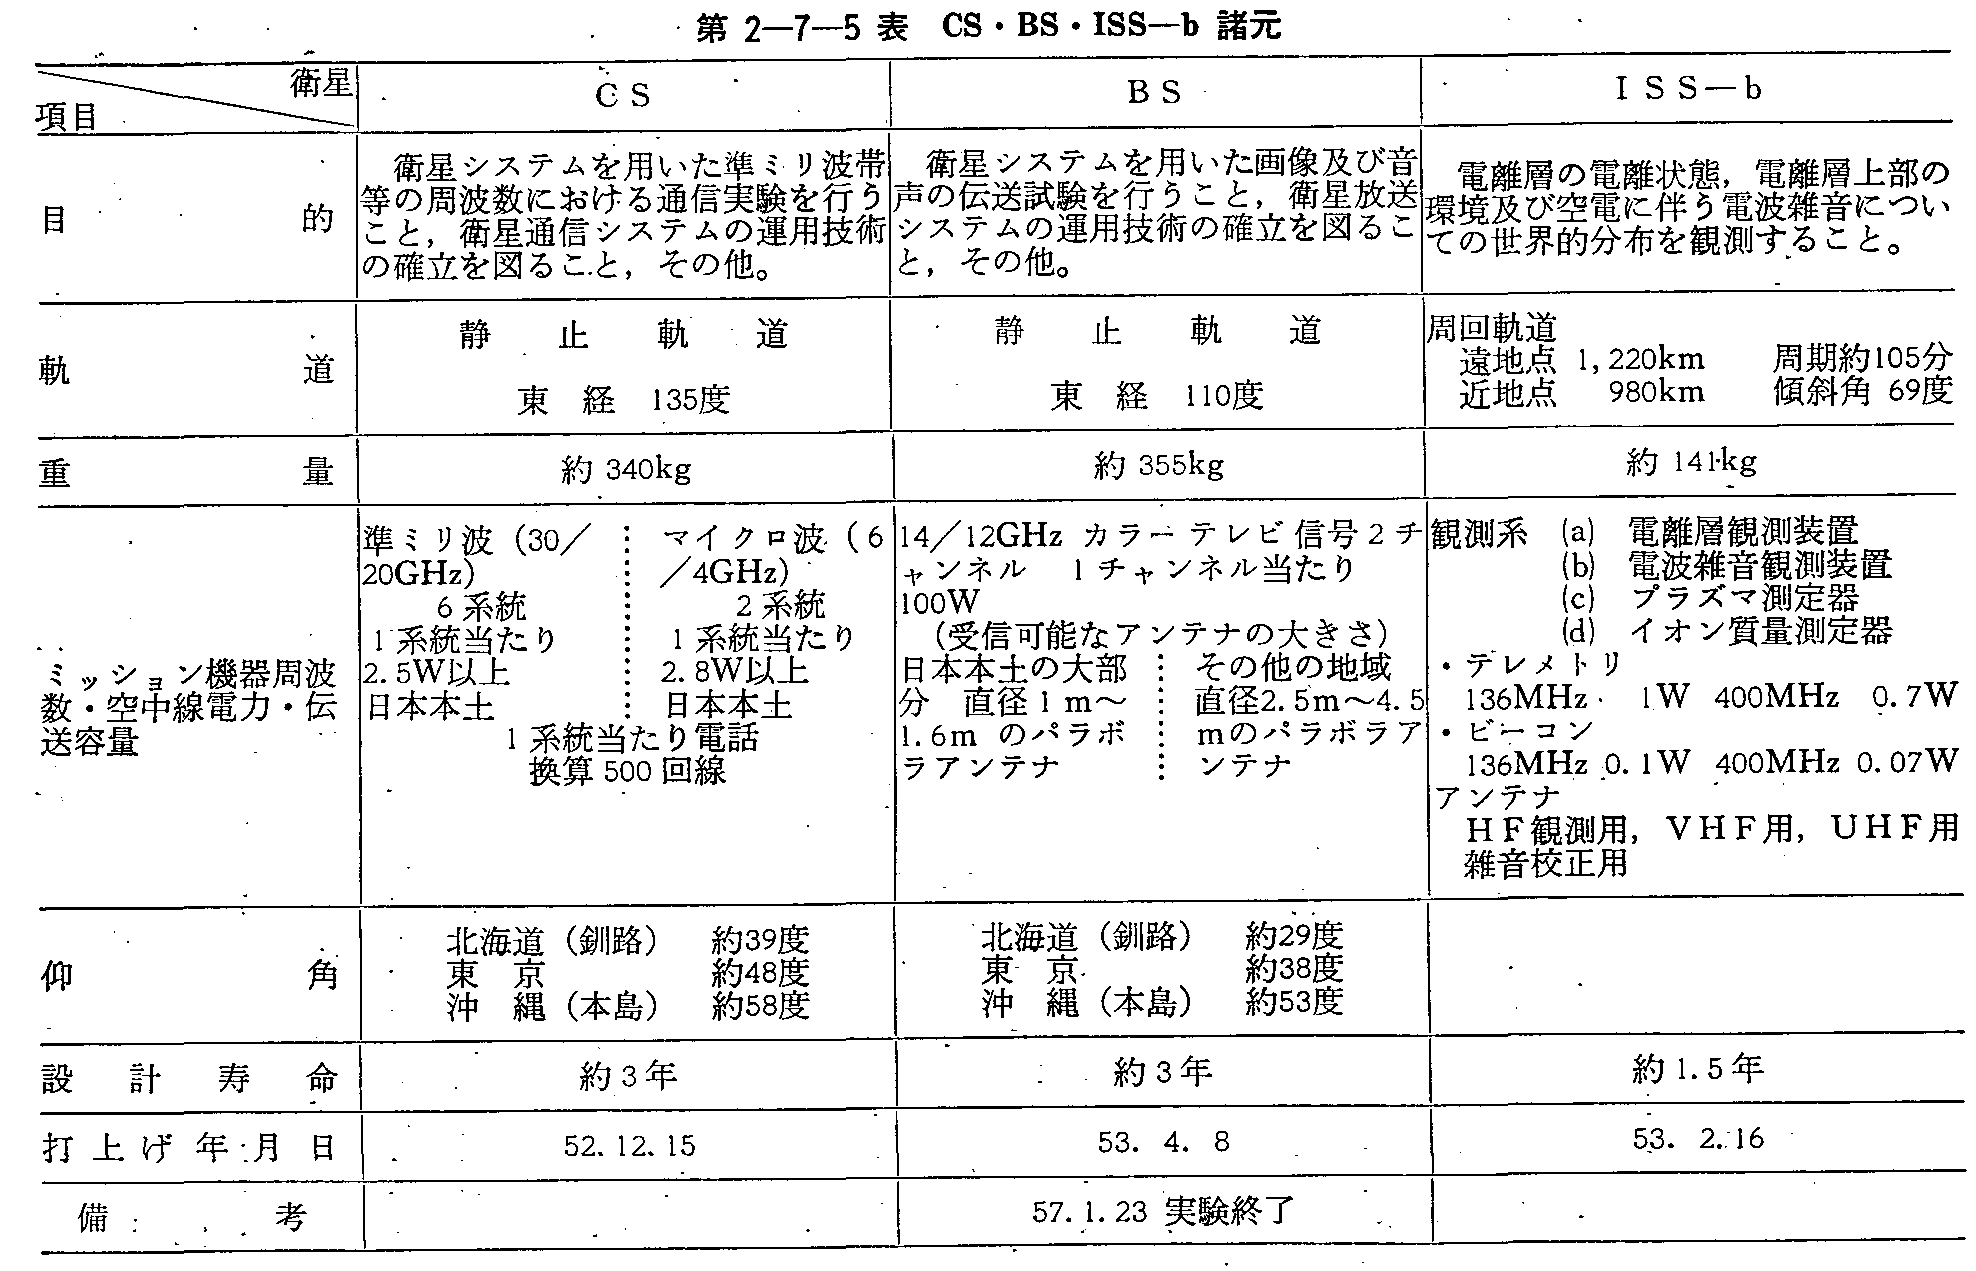 第 2―7―5 表　CS・BS・ISS―b 諸元
衛星
項目
CS
BS
ISS―b
目的
衛星システムを用いた準ミリ波帯
等の周波数における通信実験を行う
こと，衛星通信システムの運用技術
の確立を図ること，その他。
衛星システムを用いた画像及び音
声の伝送試験を行うこと，衛星放送
システムの運用技術の確立を図るこ
と，その他。
電離層の電離状態，電離層上部の
環境及び空電に伴う電波雑音につい
ての世界的分布を観測すること。
軌道
静止軌道
東経 135度
静止軌道
東経 110度
周回軌道
遠地点 1,220km　周期約105分
近地点 980km　傾斜角 69度
重量
約 340kg
約 355kg
約 141kg
ミッション機器周波
数・空中線電力・伝
送容量
準ミリ波（30／
20GHz）
6 系統
1 系統当たり
2.5W以上
日本本土
マイクロ波（6
／4GHz）
2 系統
1 系統当たり
2.8W以上
日本本土
1 系統当たり電話
換算 500 回線
14／12GHz カラーテレビ信号 2 チ
ャンネル　1 チャンネル当たり
100W
（受信可能なアンテナの大きさ）
日本本土の大部
分　直径 1 m〜
1.6m のパラボ
ラアンテナ
その他の地域
直径2.5m〜4.5
mのパラボラア
ンテナ
観測系　(a)　電離層観測装置
(b)　電波雑音観測装置
(c)　プラズマ測定器
(d)　イオン質量測定器
・テレメトリ
136MHz　1W　400MHz　0.7W
・ビーコン
136MHz 0.1W　400MHz 0.07W
アンテナ
HF観測用，VHF用，UHF用
雑音校正用
仰角
北海道（釧路）　約39度
東京　約48度
沖縄（本島）　約58度
北海道（釧路）　約29度
東京　約38度
沖縄（本島）　約53度
設計寿命
約 3 年
約 3 年
約 1.5 年
打上げ年月日
52.12.15
53. 4. 8
53. 2.16
備考
57.1.23 実験終了